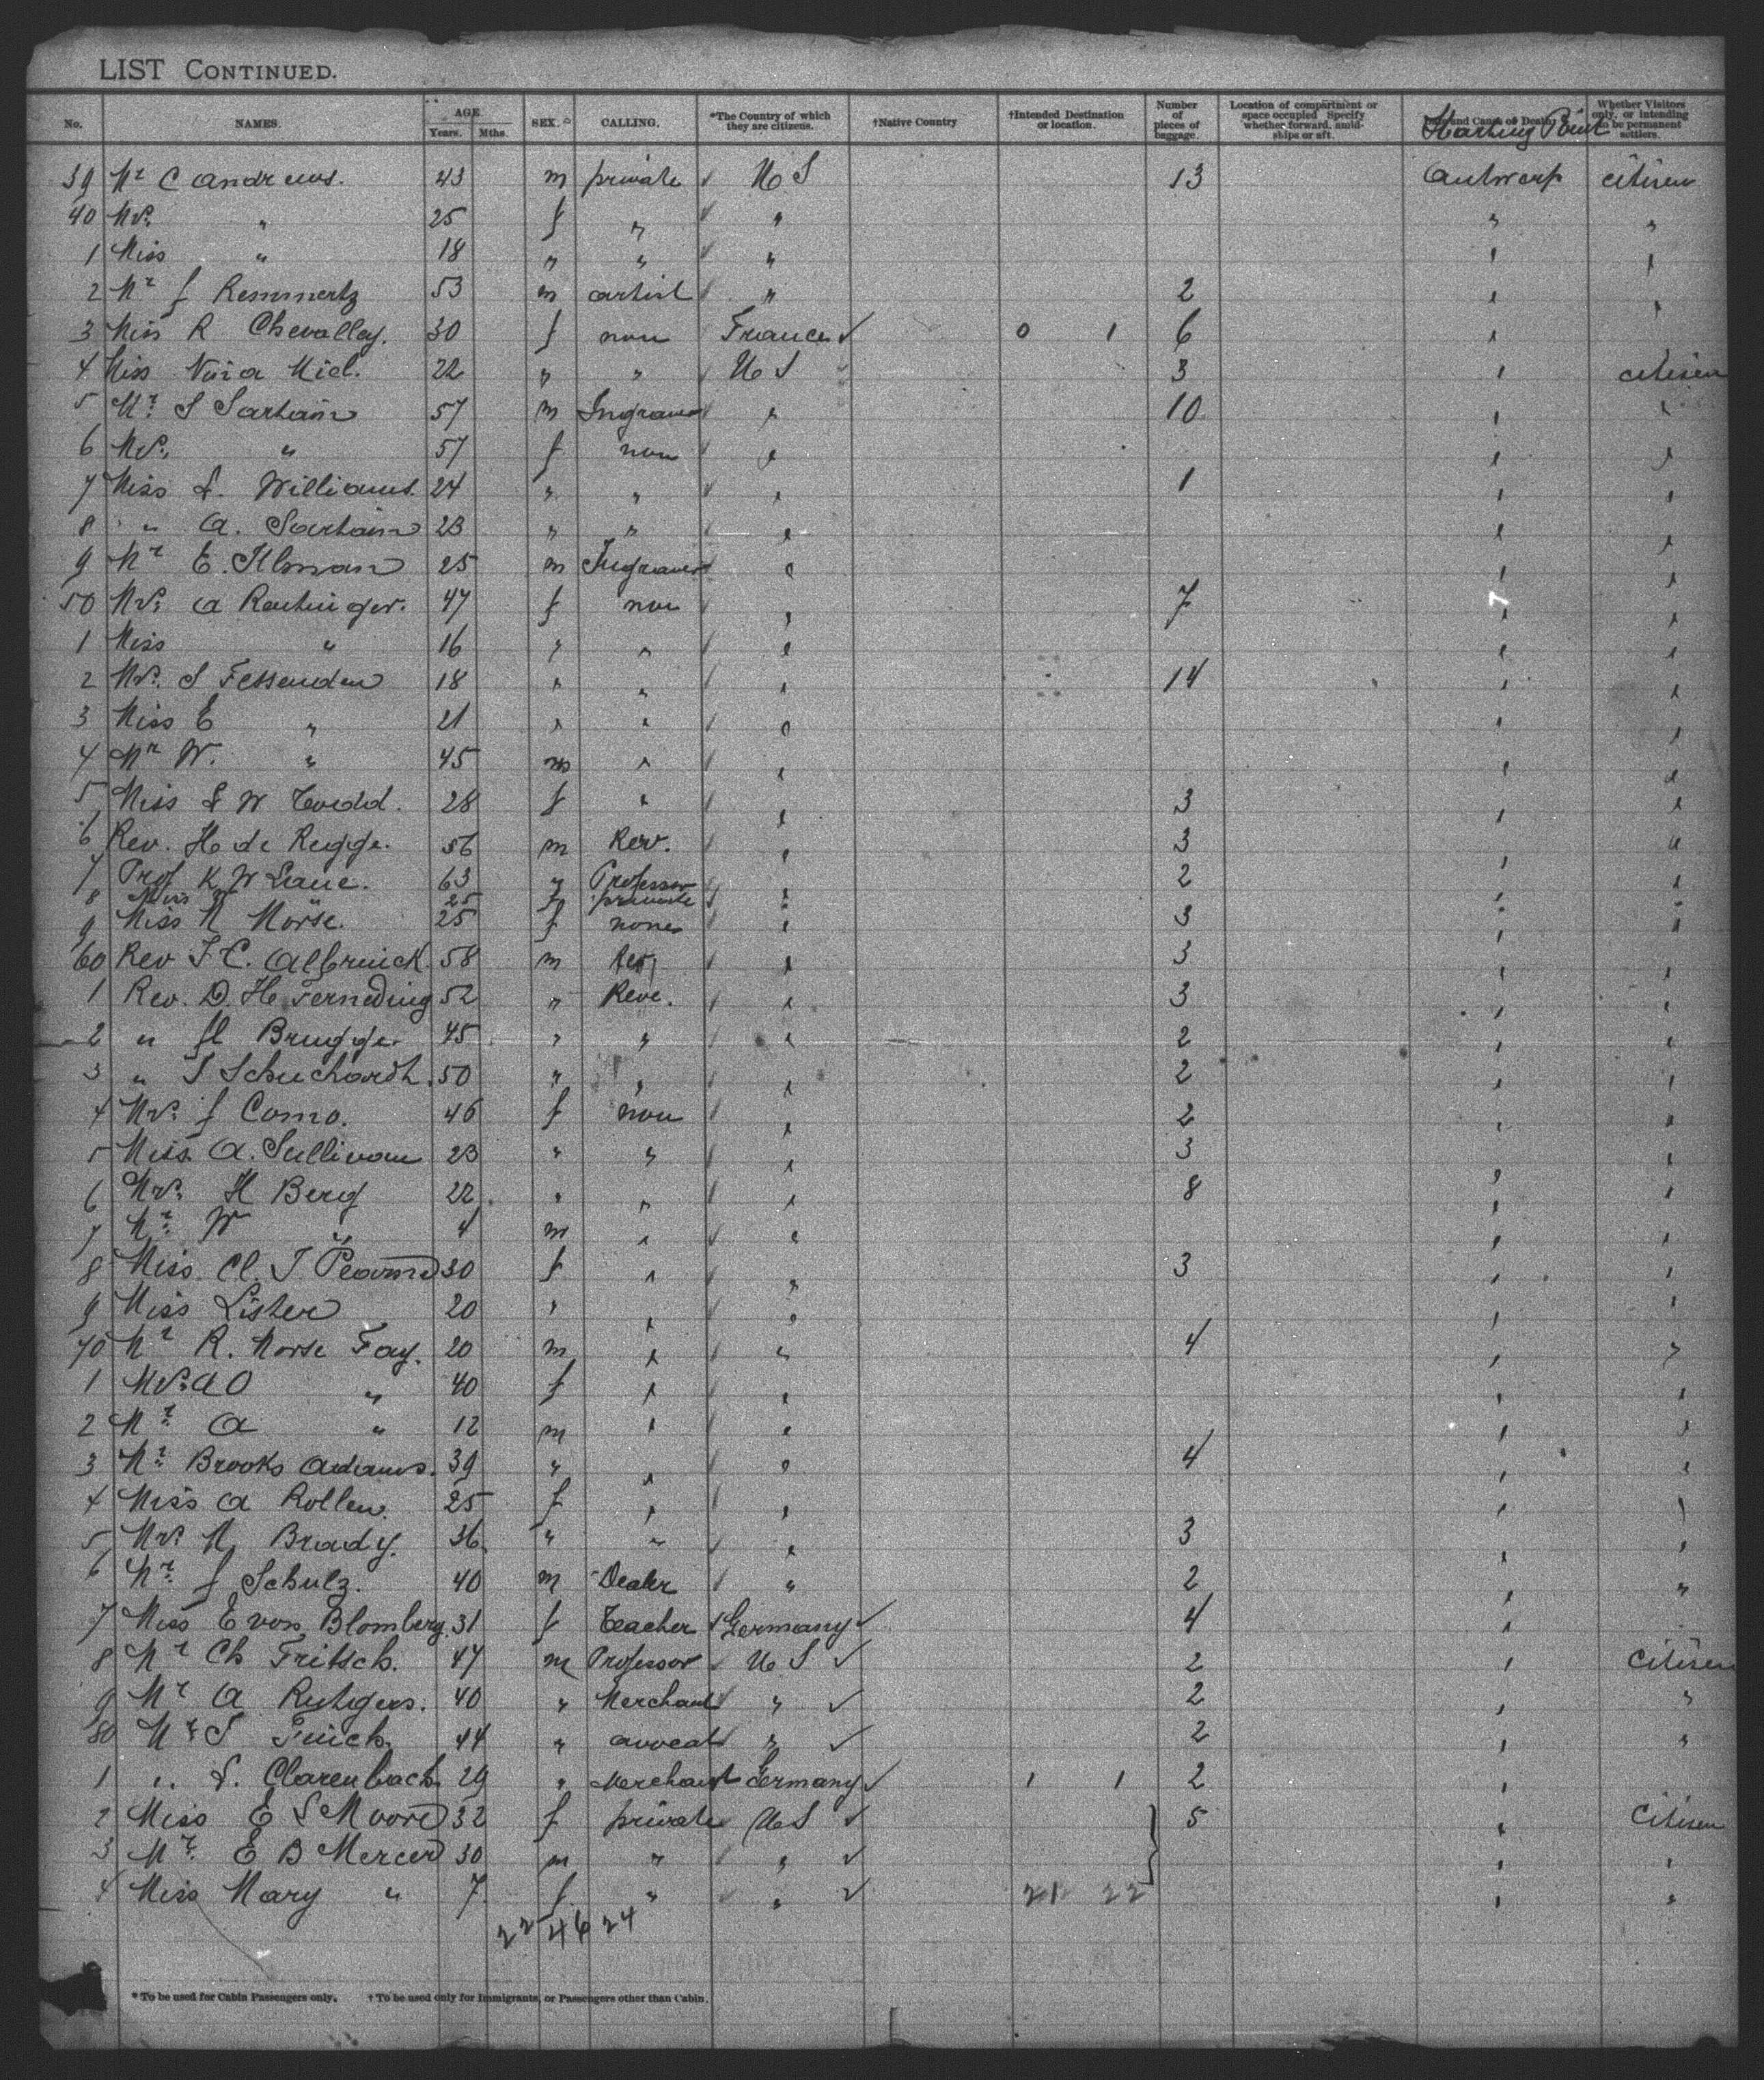 LIST CONTINUED.
No. NAMES. AGE Years. Mths. SEX. CALLING. *The Country of which they are citizens. †Native Country †Intended Destination or location. Number of pieces of baggage. Location of compartment or space occupied Specify whether forward, amidships or aft. Date and Cause of Death. Starting Point Whether Visitors only, or intending to be permanent settlers.
39 Mr C Andrews. 43 m private ✓ U S 13 Antwerp citisen
40 Mrs. " 25 f " ✓ " " "
1 Miss " 18 " " ✓ " " "
2 Mr f Remmertz 53 m artist ✓ " 2 " "
3 Miss R Chevalley. 30 f non France ✓ 0 1 6 "
4 Miss 22 " " ✓ U S 3 " citisen
5 Mr. S Sartain 57 m Ingraver ✓ " 10 " "
6 Mrs. " 57 f non " " "
7 Miss L. Williams. 24 " " ✓ " 1 " "
8 " A. Sartain 23 " " " " "
9 Mr E. Ilman 25 m Ingraver ✓ " " "
50 Mrs. a 47 f non " 7 " "
1 Miss " 16 " " ✓ " " "
2 Mrs. S Fessenden 18 " " ✓ " 14 " "
3 Miss E " 21 " " ✓ " " "
4 Mr W. " 45 m " ✓ " " "
5 Miss L W Todd. 28 f " ✓ " 3 " "
6 Rev. H de Regge. 56 m Rev. ✓ " 3 " "
7 Prof K W Lane. 63 " Professor ✓ " 2 " "
8 Miss W " 25 f private ✓ " " "
9 Miss N Morse. 25 f none " 3 " "
60 Rev J. C. Albrinck. 58 m Rev ✓ " 3 " "
1 Rev. D. H Ferneding 52 " Reve. ✓ " 3 " "
2 " H Brugge. 45 " " ✓ " 2 " "
3 " J Schuchardt. 50 " " ✓ " 2 " "
4 Mrs. f Como. 46 f non ✓ " 2 " "
5 Miss. A. Sullivan 23 " " ✓ " 3 " "
6 Mrs. H Berg 22 " " ✓ " 8 " "
7 Mr. W " 4 m " ✓ " " "
8 Miss. Cl. J. 30 f " ✓ " 3 " "
9 Miss Lister 20 " " ✓ " " "
70 Mr R. Morse Fay. 20 m " ✓ " 4 " "
1 Mrs. A O " 40 f " ✓ " " "
2 Mr. A " 12 m " ✓ " " "
3 Mr. Brooks Adams. 39 " " ✓ " 4 " "
4 Miss A Rollen. 25 f " ✓ " " "
5 Mrs. M. Brady. 36 " " ✓ " 3 " "
6 Mr. f Schulz. 40 m Dealer ✓ " 2 " "
7 Miss E von Blomberg. 31 f Teacher ✓ Germany ✓ 4 "
8 Mr Ch Fritsch. 47 m Professor ✓ U S ✓ 2 " Citisen
9 Mr A Rutgers. 40 " Merchant ✓ " ✓ 2 " "
80 Mr S 44 " avocat ✓ " ✓ 2 " "
1 " L. Clarenbach 29 " Merchant Germany ✓ 1 1 2 "
2 Miss E S Moore 32 f private ✓ U S ✓ 5 " Citisen
3 Mr. E B Mercer 30 m " ✓ " ✓ " "
4 Miss Mary " 7 f " ✓ " ✓ 21 22 " "
22 46 24
* To be used for Cabin Passengers only. † To be used only for Immigrants, or Passengers other than Cabin.